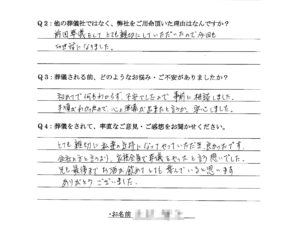 Q2：他の葬儀社ではなく、弊社をご用命頂いた理由はなんですか？
前回葬儀をして とても親切にしていただいたので今回も
お世話になりました。
Q3：葬儀される前、どのようなお悩み・ご不安がありましたか？
初めてで何もわからず、不安でしたので 事前に相談しました。
手順がわかったので、心の準備が出来たと言うか、安心しました。
Q4：葬儀をされて、率直なご意見・ご感想をお聞かせください。
とても親切に 私達の気持になってやっていただき 良かったです。
会社の方と言うより、家族全員で葬儀をやったと言う思いでした。
兄も最後まで お酒が飲めてとても喜んでいると思います
ありがとう ございました。
・お名前